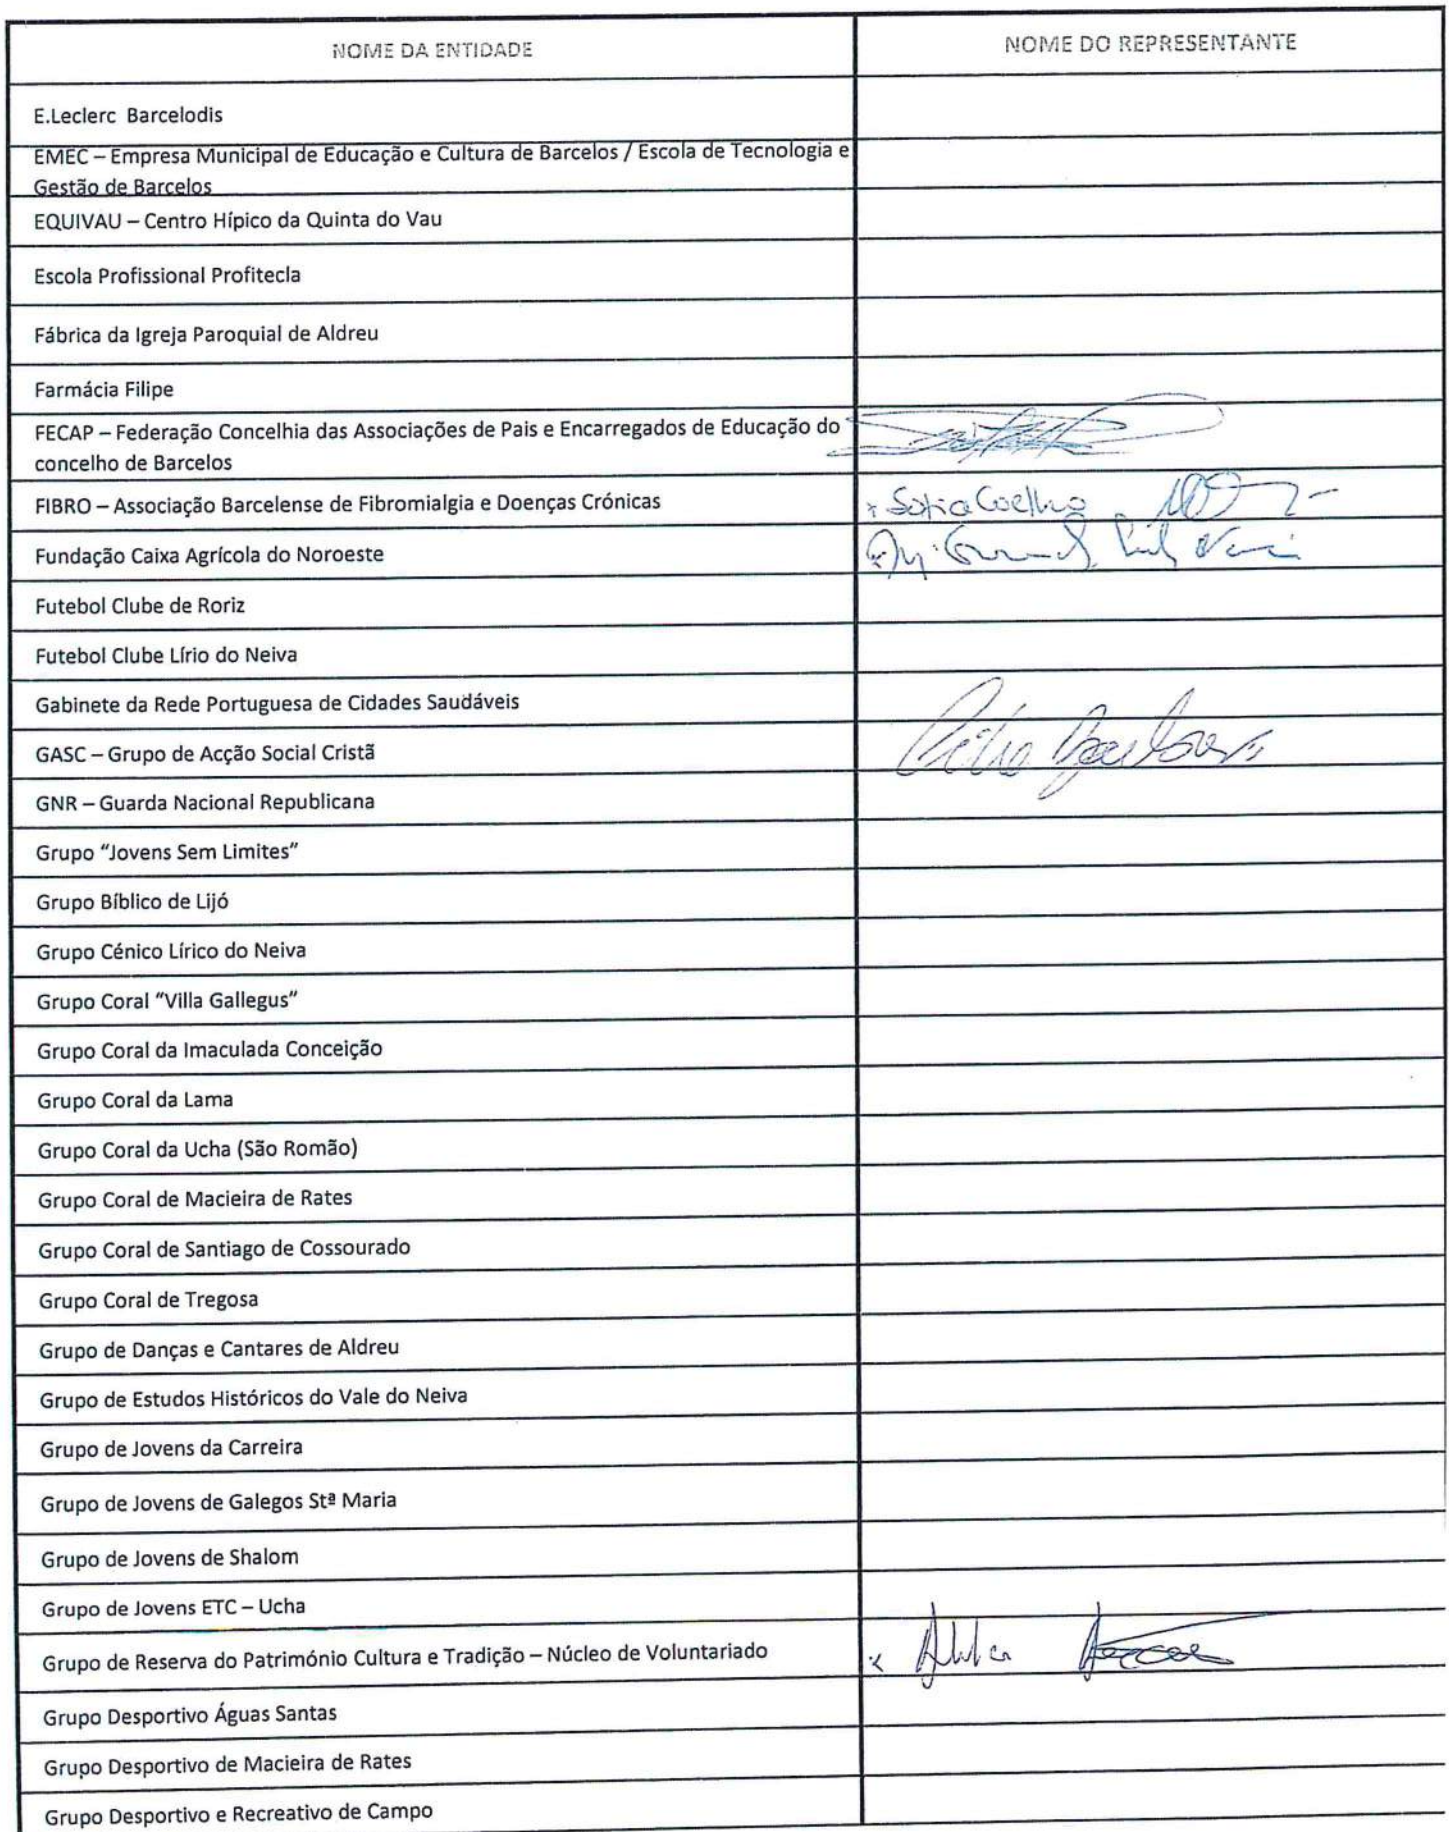 NOME DA ENTIDADE
NOME DO REPRESENTANTE
E.Leclerc Barcelodis
EMEC – Empresa Municipal de Educação e Cultura de Barcelos / Escola de Tecnologia e
Gestão de Barcelos
EQUIVAU – Centro Hípico da Quinta do Vau
Escola Profissional Profitecla
Fábrica da Igreja Paroquial de Aldreu
Farmácia Filipe
FECAP – Federação Concelhia das Associações de Pais e Encarregados de Educação do
concelho de Barcelos
FIBRO – Associação Barcelense de Fibromialgia e Doenças Crónicas
Sofia Coelho
Fundação Caixa Agrícola do Noroeste
Futebol Clube de Roriz
Futebol Clube Lírio do Neiva
Gabinete da Rede Portuguesa de Cidades Saudáveis
GASC – Grupo de Acção Social Cristã
GNR – Guarda Nacional Republicana
Grupo “Jovens Sem Limites”
Grupo Bíblico de Lijó
Grupo Cénico Lírico do Neiva
Grupo Coral “Villa Gallegus”
Grupo Coral da Imaculada Conceição
Grupo Coral da Lama
Grupo Coral da Ucha (São Romão)
Grupo Coral de Macieira de Rates
Grupo Coral de Santiago de Cossourado
Grupo Coral de Tregosa
Grupo de Danças e Cantares de Aldreu
Grupo de Estudos Históricos do Vale do Neiva
Grupo de Jovens da Carreira
Grupo de Jovens de Galegos Stª Maria
Grupo de Jovens de Shalom
Grupo de Jovens ETC – Ucha
Grupo de Reserva do Património Cultura e Tradição – Núcleo de Voluntariado
Grupo Desportivo Águas Santas
Grupo Desportivo de Macieira de Rates
Grupo Desportivo e Recreativo de Campo